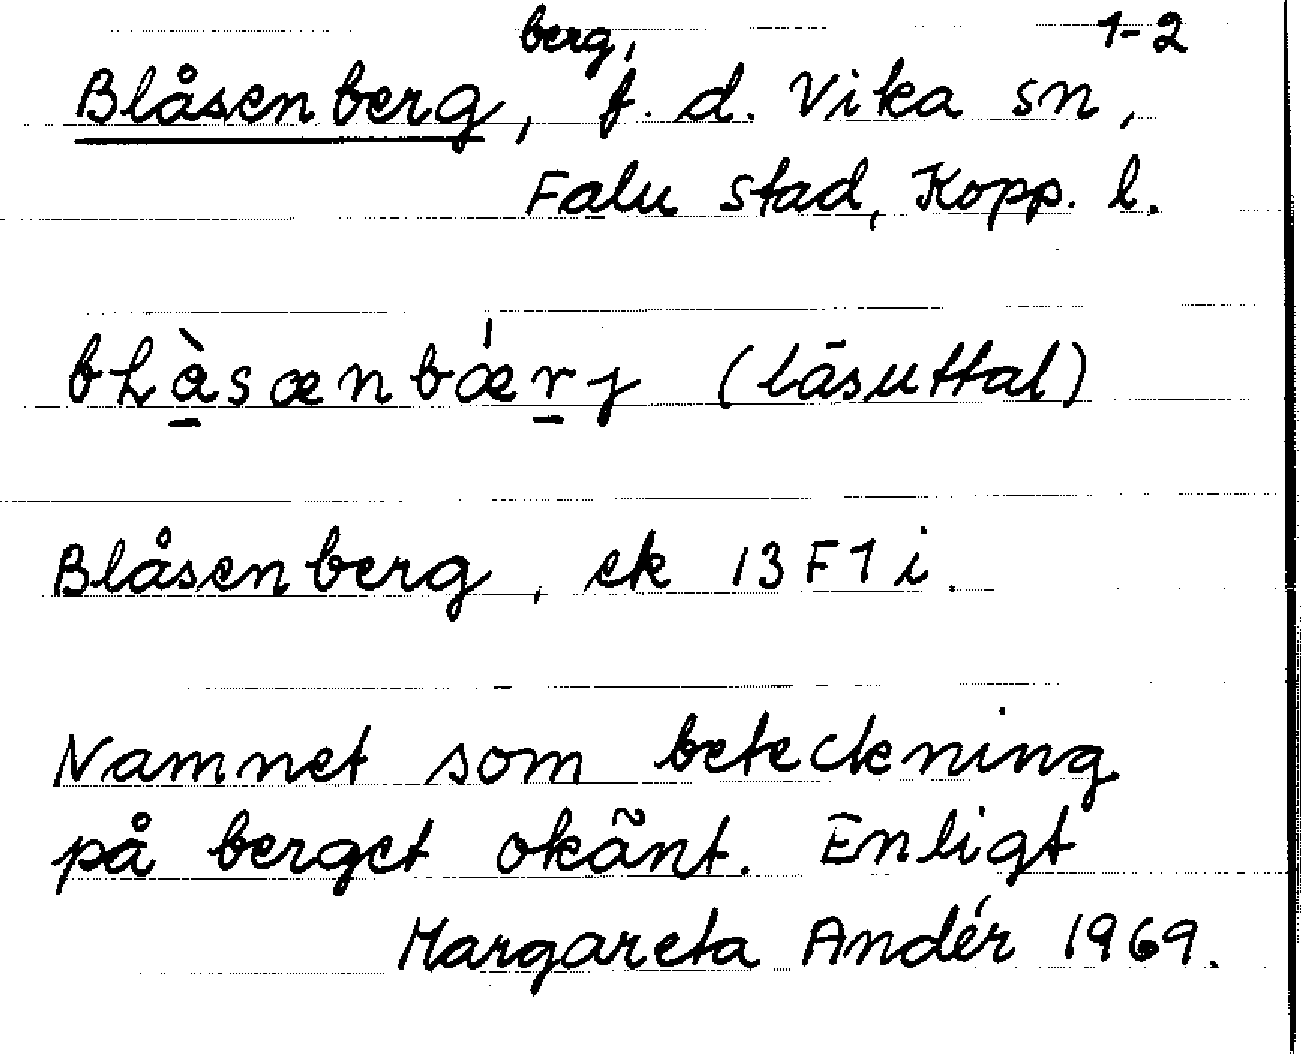 berg, 1-2
Blåsenberg, f. d. Vika sn,
Falu stad, Kopp. l.
(läsuttal)
Blåsenberg, ek 13 F 1 i.
Namnet som beteckning
på berget okänt. Enligt
Margareta Andér 1969.